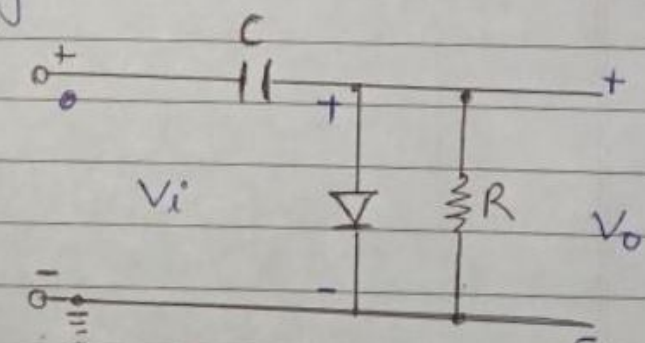 C
+ +
+
Vi R Vo
-
-